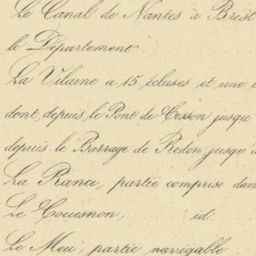 Le Canal de Nantes à Brest
le Département
La Vilaine a 15 écluses et une
dont, depuis le Pont de Cesson jusque
depuis le Barrage de Redon jusqu'
La Rance, partie comprise dans
Le Couesnon, id.
Le Meu, partie navigable